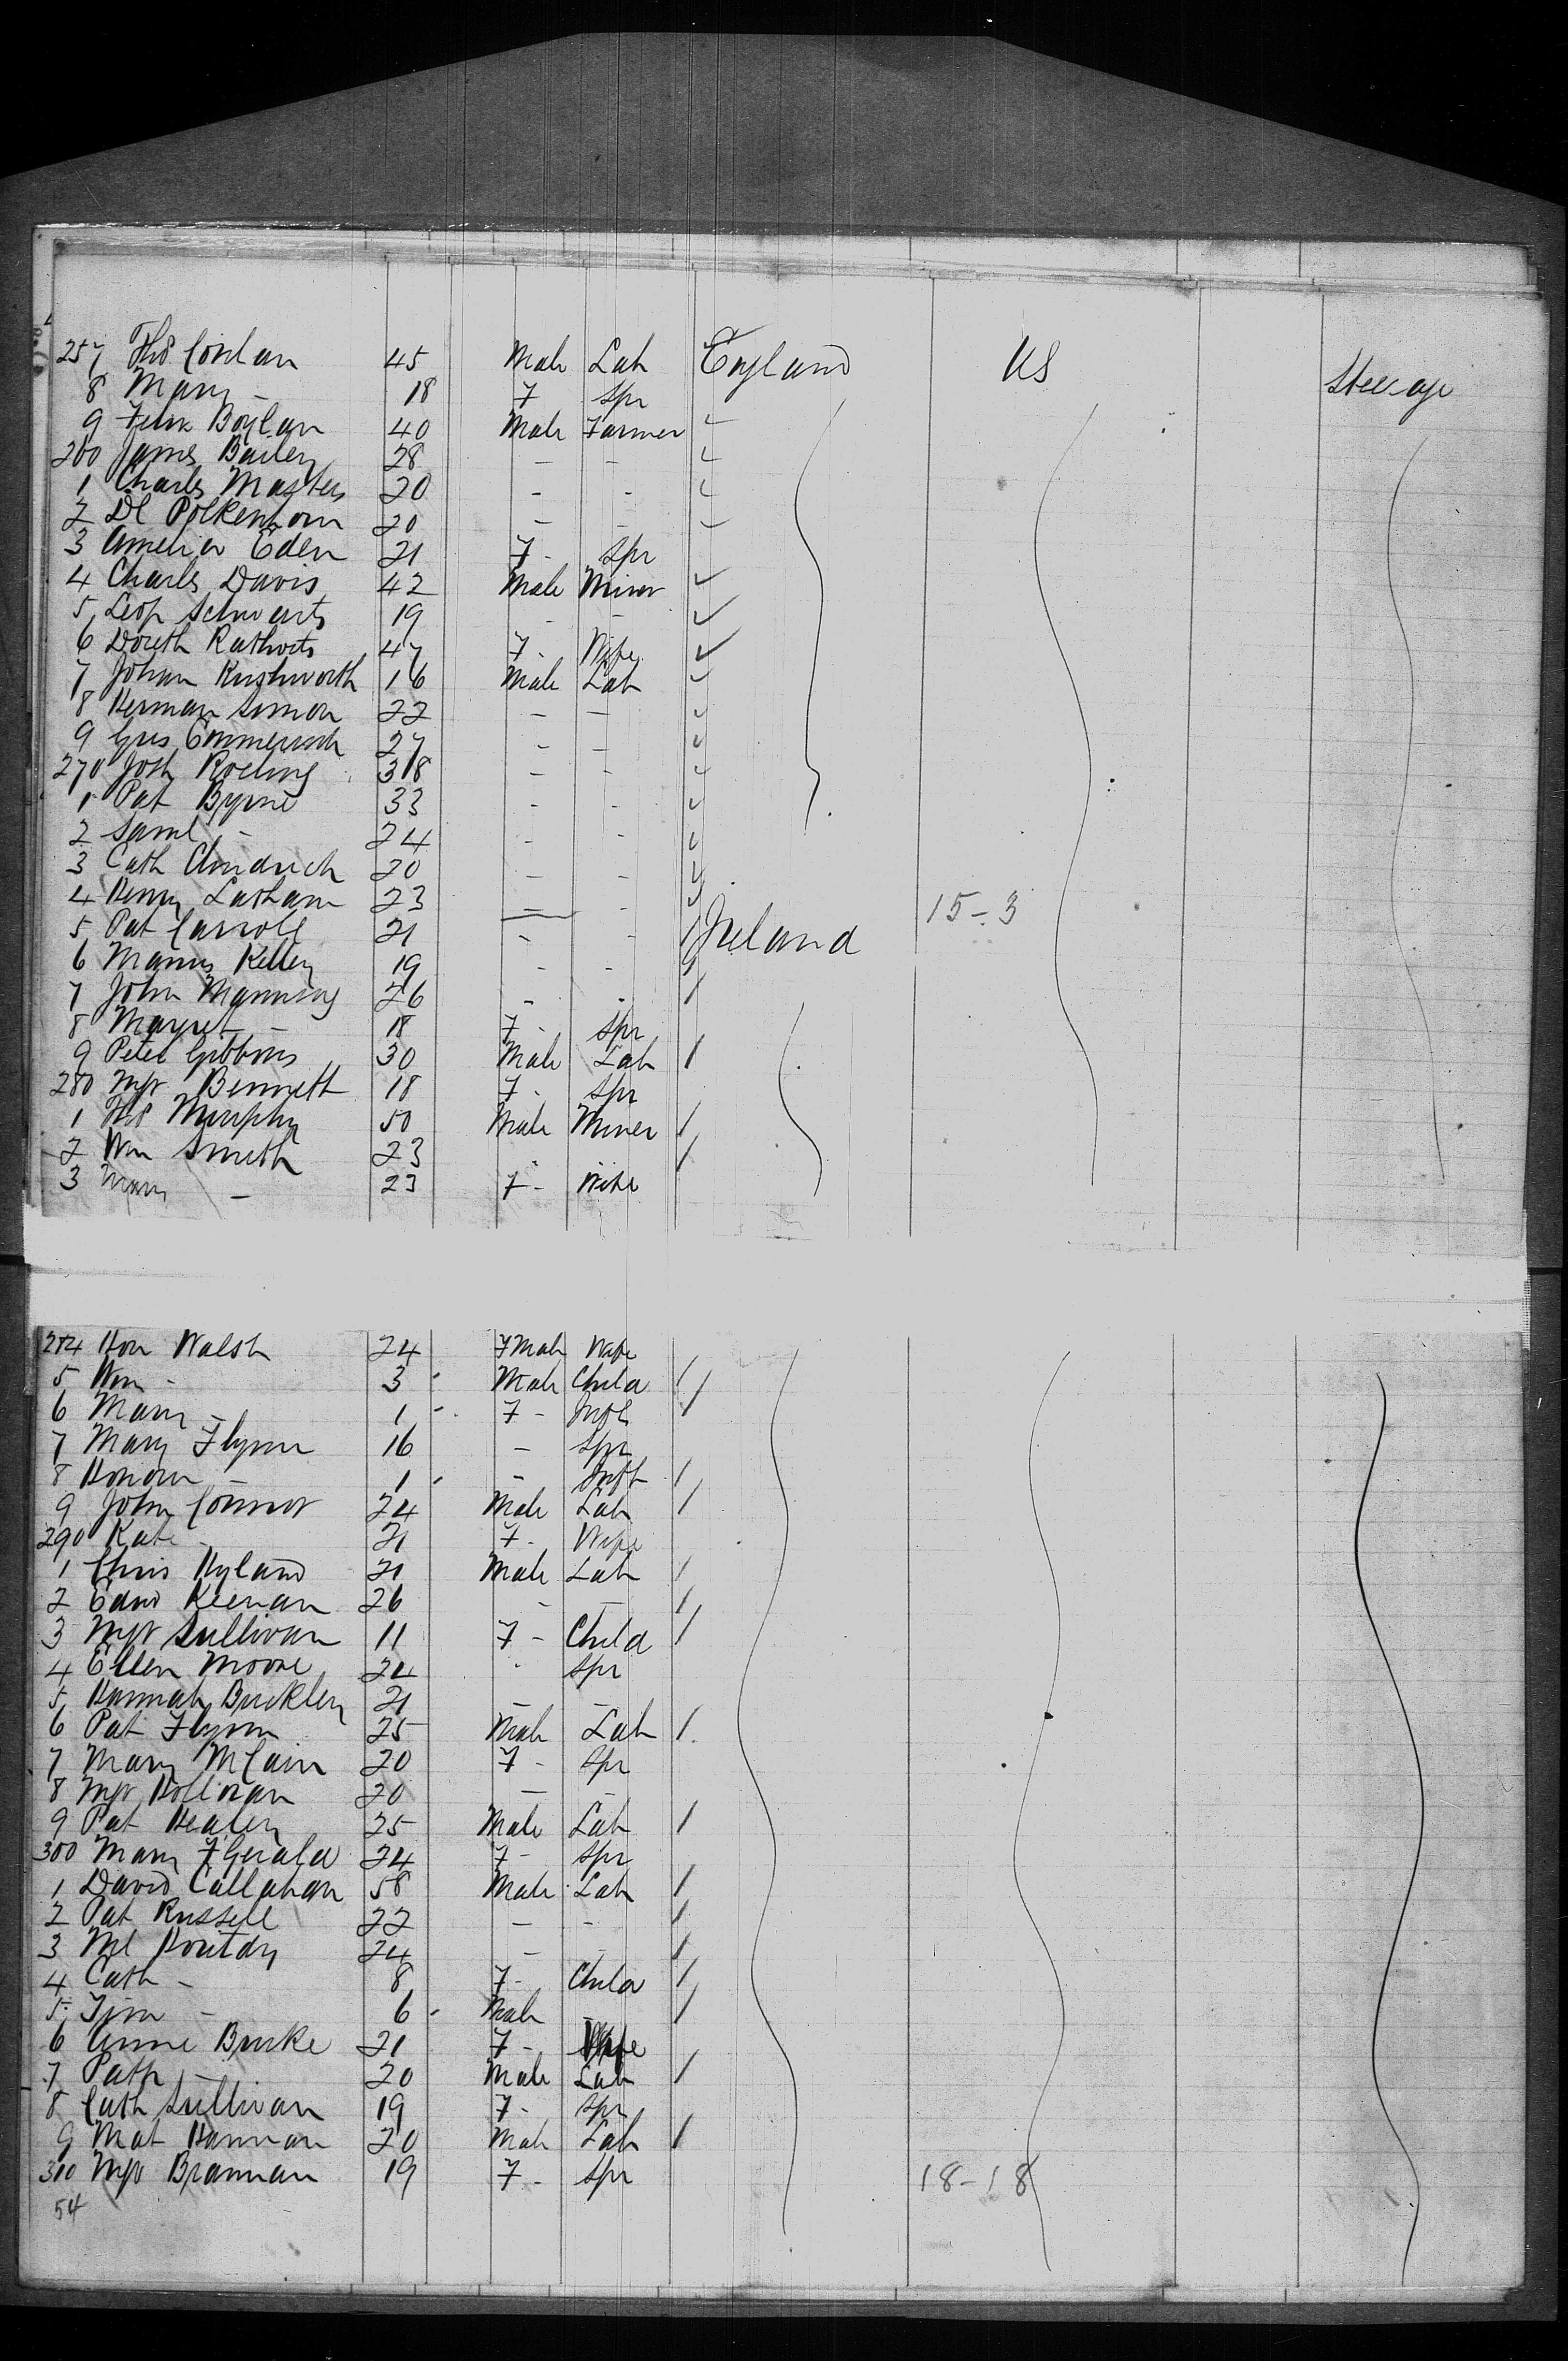 257 Ths Conlan 45 Male Lab England US Steerage
8 Mary - 18 F Spr
9 Felix Boylan 40 Male Farmer
260 James Bailey 28 - -
1 Charles Masters 20 - -
2 Dl Polkenhorn 20 - -
3 Amelia Eden 21 F - Spr
4 Charles Davis 42 Male Miner
5 Leop Schwarts 19 - -
6 Doreth 47 F - Wife
7 Johan Rushworth 16 Male Lab
8 Herman Simon 22 - -
9 Gus Emmerisch 27 - -
270 Josh Roeling 38 - -
1 Pat Byrne 33 - -
2 Saml - 24 - -
3 Cath 20 - -
4 Henry Latham 23 - - 15-3
5 Pat Carroll 21 - - Ireland
6 Manus Kelley 19 - -
7 John Manning 26 - -
8 Margret - 18 F - Spr
9 Peter Gibbons 30 Male Lab
280 Mgr Bennett 18 F - Spr
1 Ths Murphy 50 Male Miner
2 Wm Smith 23 - -
3 Mary - 23 F - Wife
284 Hon Walsh 24 FMale Wife
5 Wm - 3 Male Child
6 Mary - 1 F - Inft
7 Mary Flynn 16 - Spr
8 Honora - 1 - Inft
9 John Connor 24 Male Lab
290 Kate - 21 F - Wife
1 Chris Hyland 21 Male Lab
2 Edwd Keenan 26 - -
3 Mgr Sullivan 11 F - Child
4 Ellen Moore 24 - Spr
5 Hannah Buckley 21 - -
6 Pat Flynn 25 Male Lab
7 Mary McCain 20 F - Spr
8 Mgr Holloran 20 - -
9 Pat Healey 25 Male Lab
300 Mary FGerald 24 F - Spr
1 David Callahan 58 Male Lab
2 Pat Russell 22 - -
3 Ml 24 - -
4 Cath - 8 F - Child
5 Tim - 6 Male -
6 Anne Burke 21 F - Wife
7 Path - 20 Male Lab
8 Cath Sullivan 19 F - Spr
9 Mat Hannan 20 Male Lab
310 Mgr Brannan 19 F - Spr 18-18
54